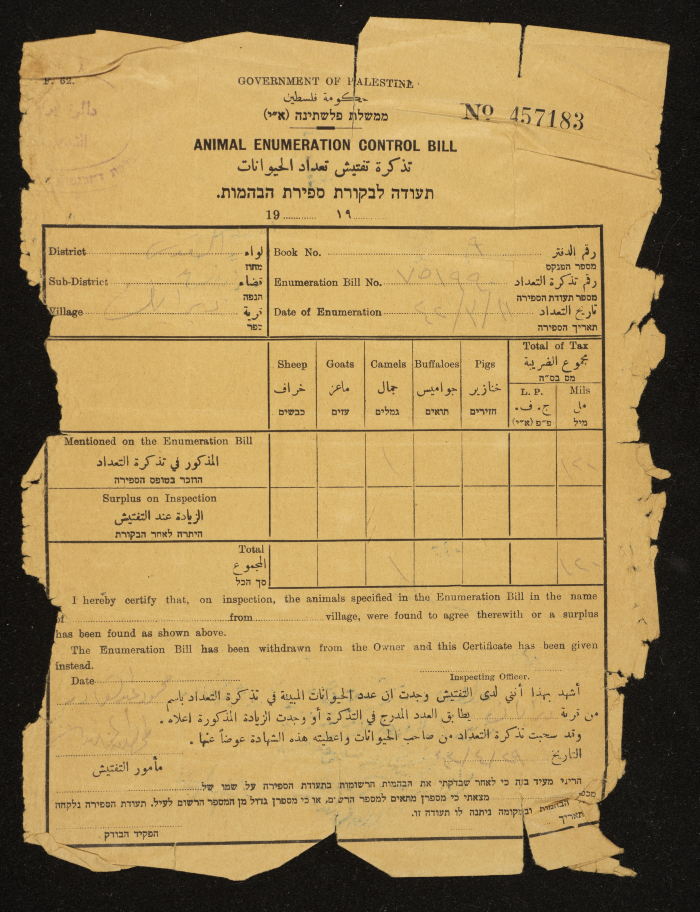 F. 62.
GOVERNMENT OF PALESTINE
حكومة فلسطين
ממשלת פלשתינה (א״י)
No 457183
ANIMAL ENUMERATION CONTROL BILL
تذكرة تفتيش تعداد الحيوانات
תעודה לבקורת ספירת הבהמות.
19 ١٩
District لواء
מחוז
Sub-District قضاء
הנפה
Village قرية
כפר
Book No. رقم الدفتر
מספר הפנקס
Enumeration Bill No. ٧٥١٩٩ رقم تذكرة التعداد
מספר תעודת הספירה
Date of Enumeration تاريخ التعداد
תאריך הספירה
Sheep Goats Camels Buffaloes Pigs Total of Tax
خراف ماعز جمال جواميس خنازير مجموع الضريبة
כבשים עזים גמלים תואים חזירים מס בס״ה
L. P. Mils
ج. ف. مل
פ״פ (א״י) מיל
Mentioned on the Enumeration Bill
المذكور في تذكرة التعداد ١ ١٢٠
הוזכר בטופס הספירה
Surplus on Inspection
الزيادة عند التفتيش
היתרה לאחר הבקורת
Total
المجموع ١ ١٢٠
סך הכל
I hereby certify that, on inspection, the animals specified in the Enumeration Bill in the name
of from village, were found to agree therewith or a surplus
has been found as shown above.
The Enumeration Bill has been withdrawn from the Owner and this Certificate has been given
instead.
Date Inspecting Officer.
أشهد بهذا أنني لدى التفتيش وجدت ان عدد الحيوانات المبينة في تذكرة التعداد باسم
من قرية يطابق العدد المدرج في التذكرة أو وجدت الزيادة المذكورة اعلاه .
وقد سحبت تذكرة التعداد من صاحب الحيوانات واعطيته هذه الشهادة عوضاً عنها .
التاريخ
مأمور التفتيش
הריני מעיד בזה כי לאחר שבדקתי את הבהמות הרשומות בתעודת הספירה על שמו של
מכפר מצאתי כי מספרן מתאים למספר הרשום, או כי מספרן גדול מן המספר הרשום לעיל. תעודת הספירה נלקחה
הבהמות ובמקומה ניתנה לו תעודה זו.
תאריך
הפקיד הבודק